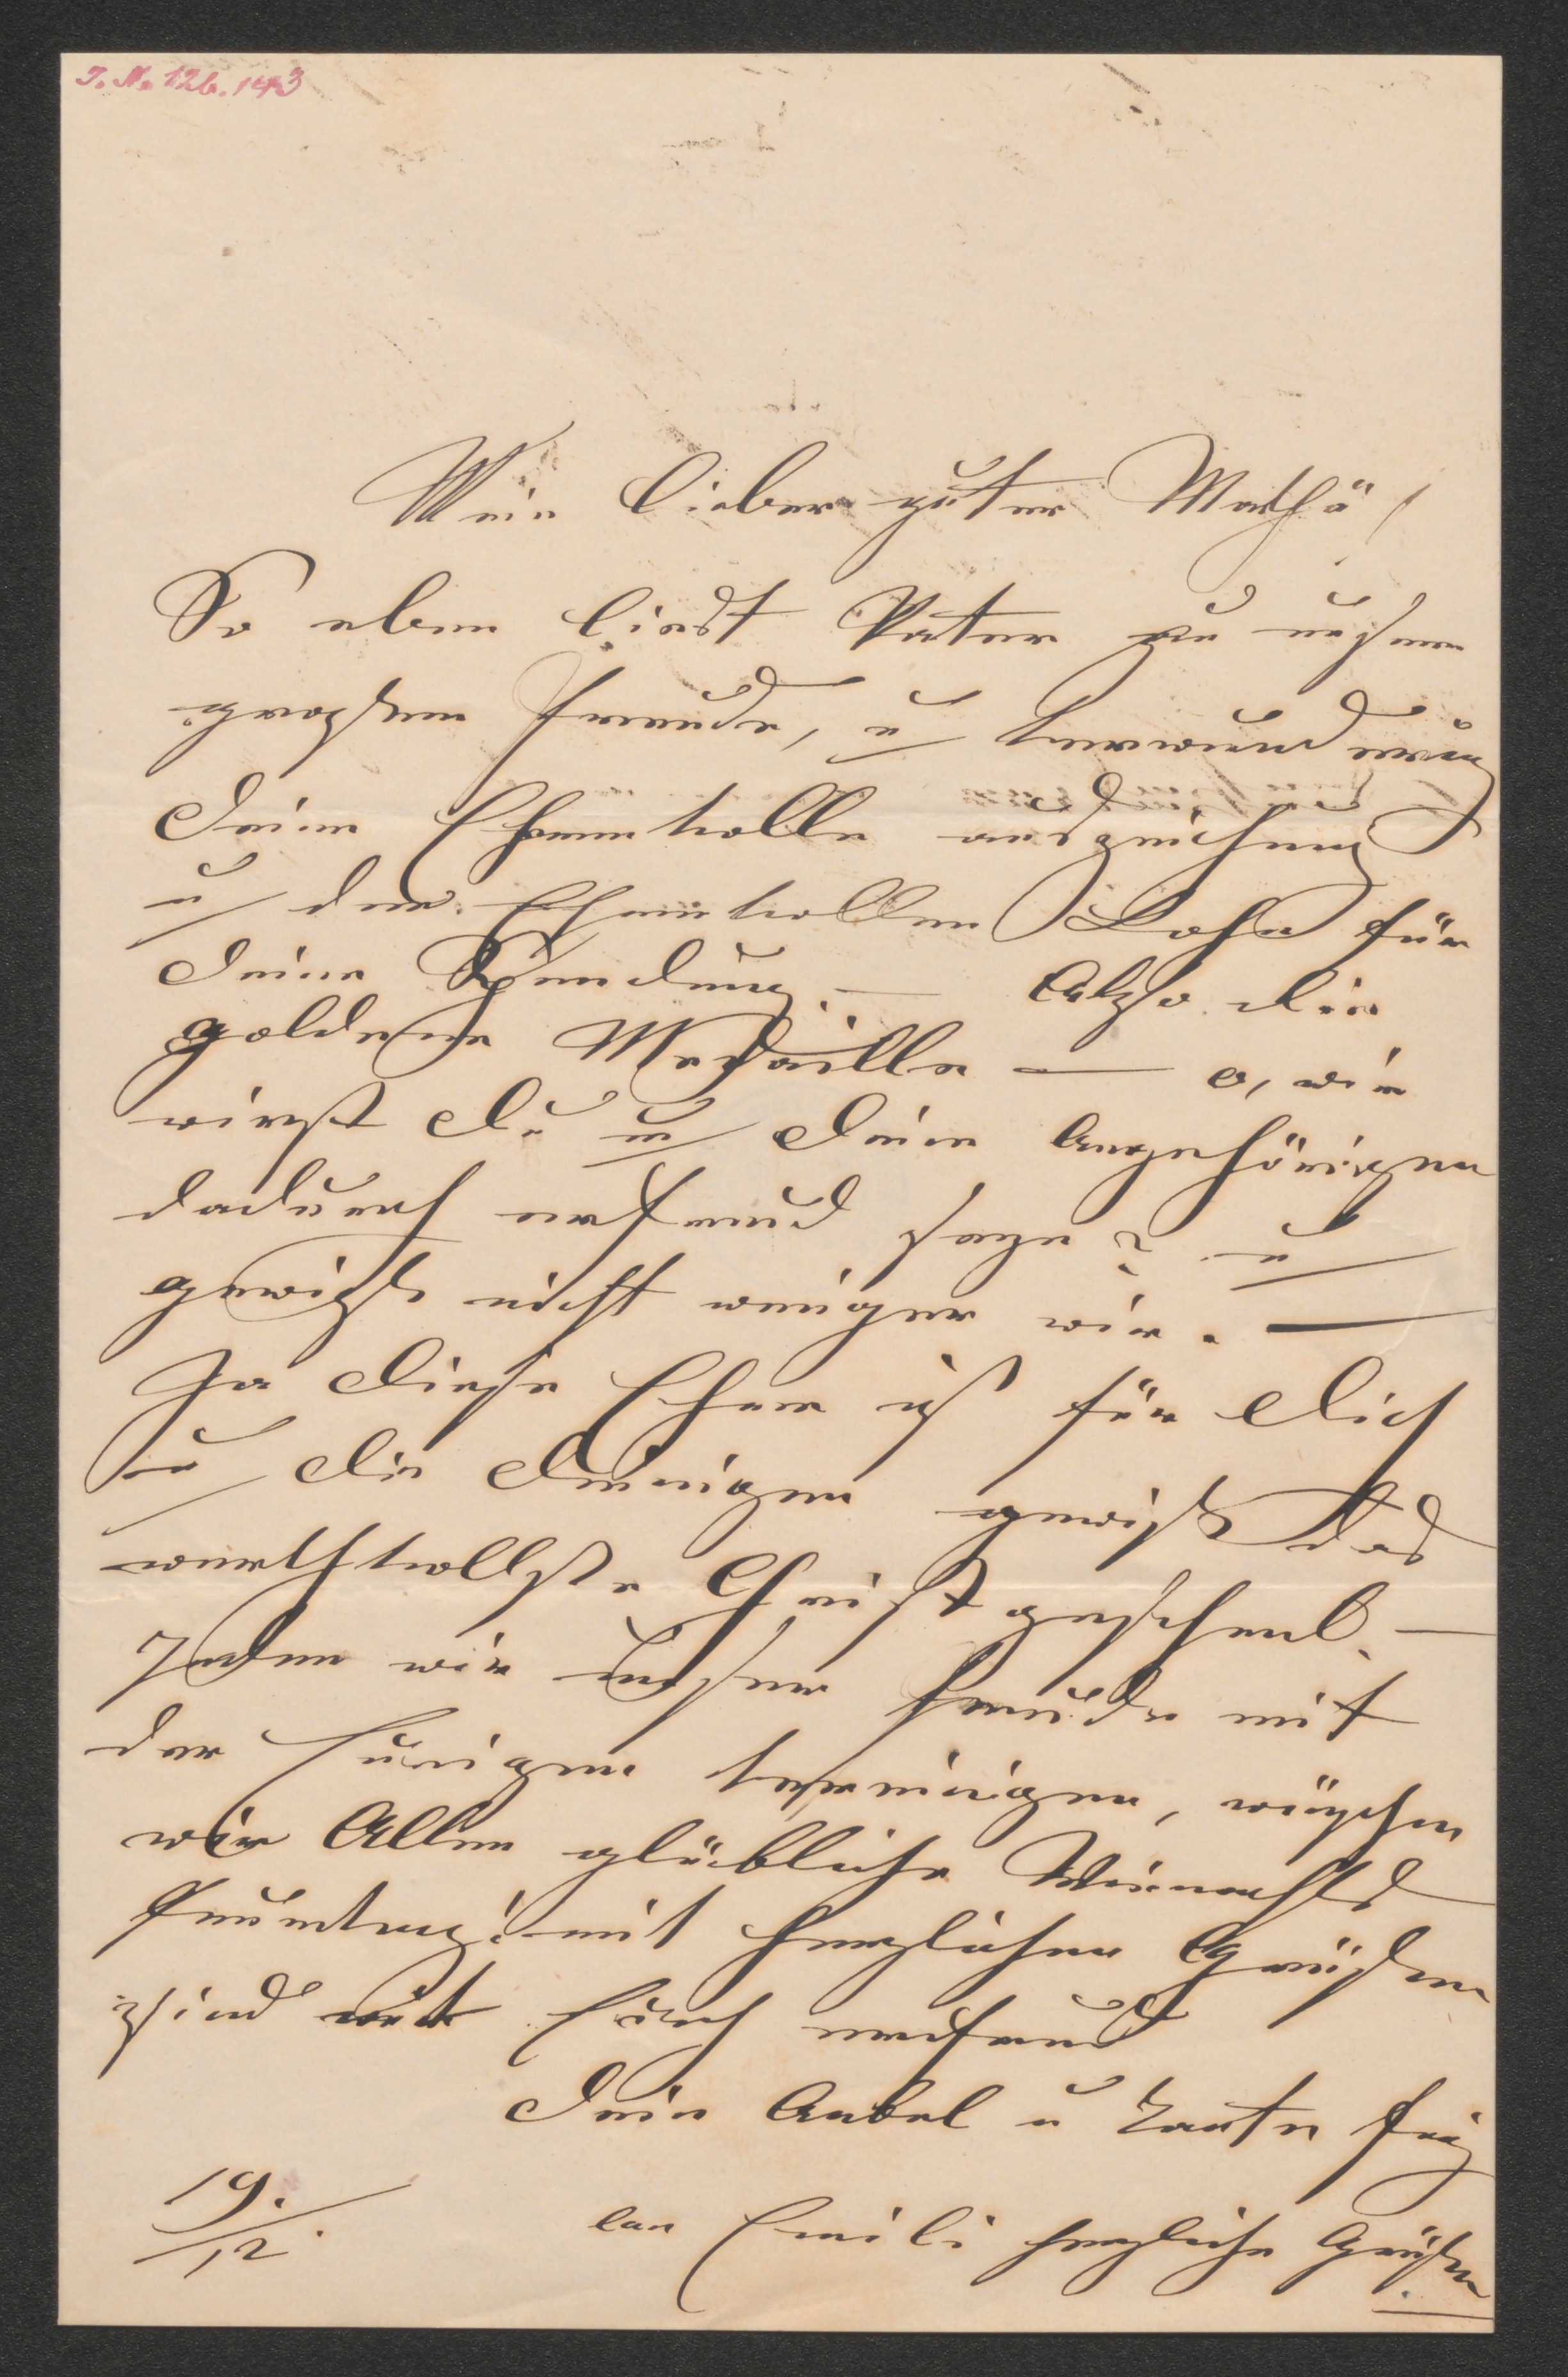 I. N. 126.143
Mein lieber guter Mathä!
So eben liest Vater zu unser
grossen Freude, u Verwunderung
Deine Ehrenvolle auszeichnung
u den Ehrenvollen Lohn für
Deine Sendung. — Also die
goldene Medaille — o, wie
wirst Du u Deine Angehörigen
dadurch erfreud seyn? u
gewiß nicht weniger wir. —
Ja diese Ehre ist für Dich
u die Deinigen gewiß das
werthvollste Christgeschenk. —
Indem wir unsere Freude mit
der Eurigen vereinigen, wünschen
wir Allen glückliche Weinachts
mit herzlichen Grüßen
sind mit Euch erfreud
Dein Onkel u Tante
19./12.
an Emili herzliche Grüße